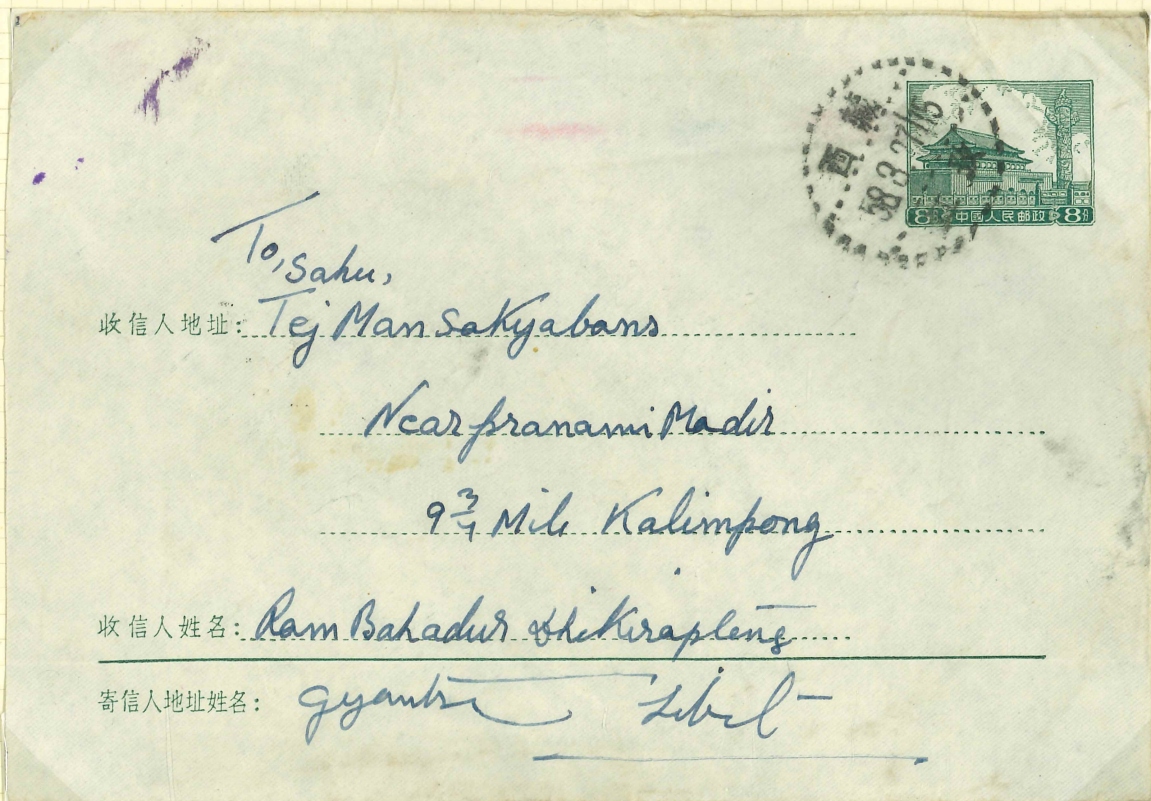 西藏
58.3.27.15
8 中國人民邮政 8分
To, Sahu,
收信人地址: Tej Man Sakyabans
Near pranami Madir
9 3/4 Mile Kalimpong
收信人姓名: Ram Bahadur
寄信人地址姓名: Gyantse Tibet